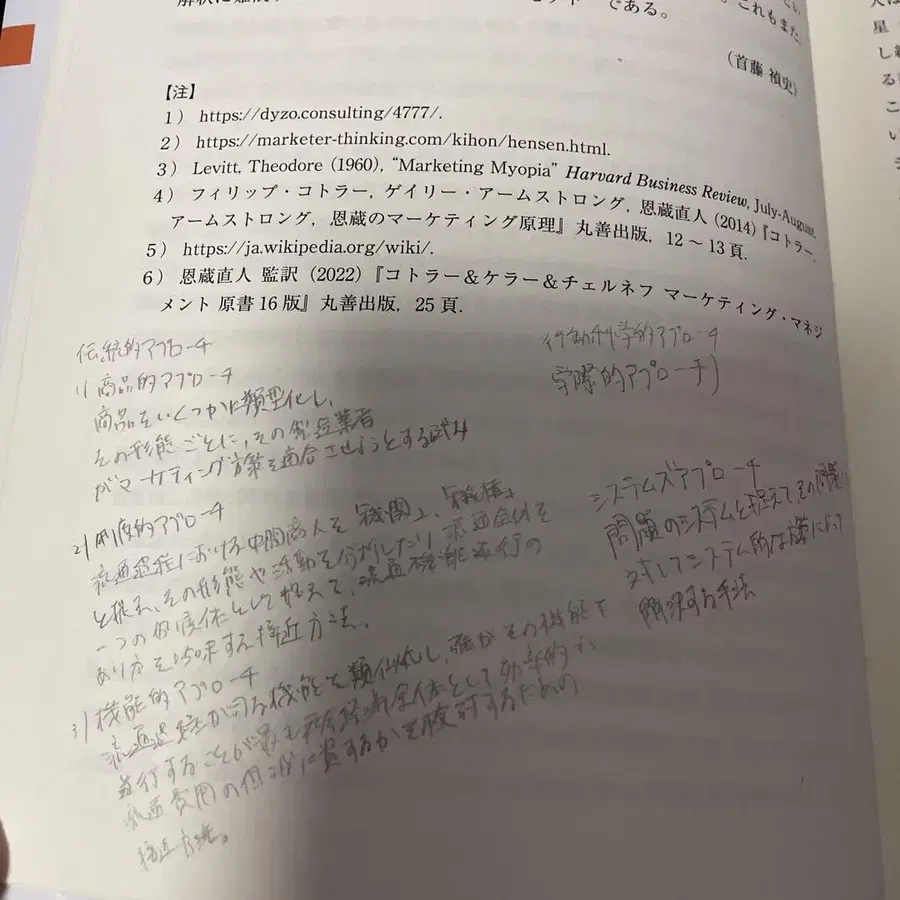 である。
これもまた、
(首藤 禎史)
【注】
1) https://dyzo.consulting/4777/.
2) https://marketer-thinking.com/kihon/hensen.html.
3) Levitt, Theodore (1960), “Marketing Myopia” Harvard Business Review, July-August.
4) フィリップ・コトラー, ゲイリー・アームストロング, 恩蔵直人 (2014)『コトラー,
アームストロング, 恩蔵のマーケティング原理』丸善出版, 12～13頁.
5) https://ja.wikipedia.org/wiki/.
6) 恩蔵直人 監訳 (2022)『コトラー＆ケラー＆チェルネフ マーケティング・マネジ
メント 原書16版』丸善出版, 25頁.
伝統的アプローチ
1) 商品的アプローチ
商品をいくつかに類型化し、
その形態ごとに、その製造業者
がマーケティング方策を適合させようとする試み
2) 制度的アプローチ
流通過程における中間商人を「機関」、「機構」
と捉え、その形態や活動を分析したり、流通全体を
一つの制度体として捉えて、流通機能遂行の
あり方を吟味する接近方法。
3) 機能的アプローチ
流通過程が司る機能を類似化し、誰がその機能を
遂行することが最も 全体として効率的で
流通費用の低減に資するかを検討するための
接近方法。
行動科学的アプローチ
学際的アプローチ)
システムズアプローチ
問題のシステムと捉えてその問題に
対してシステム的な によって
解決する手法